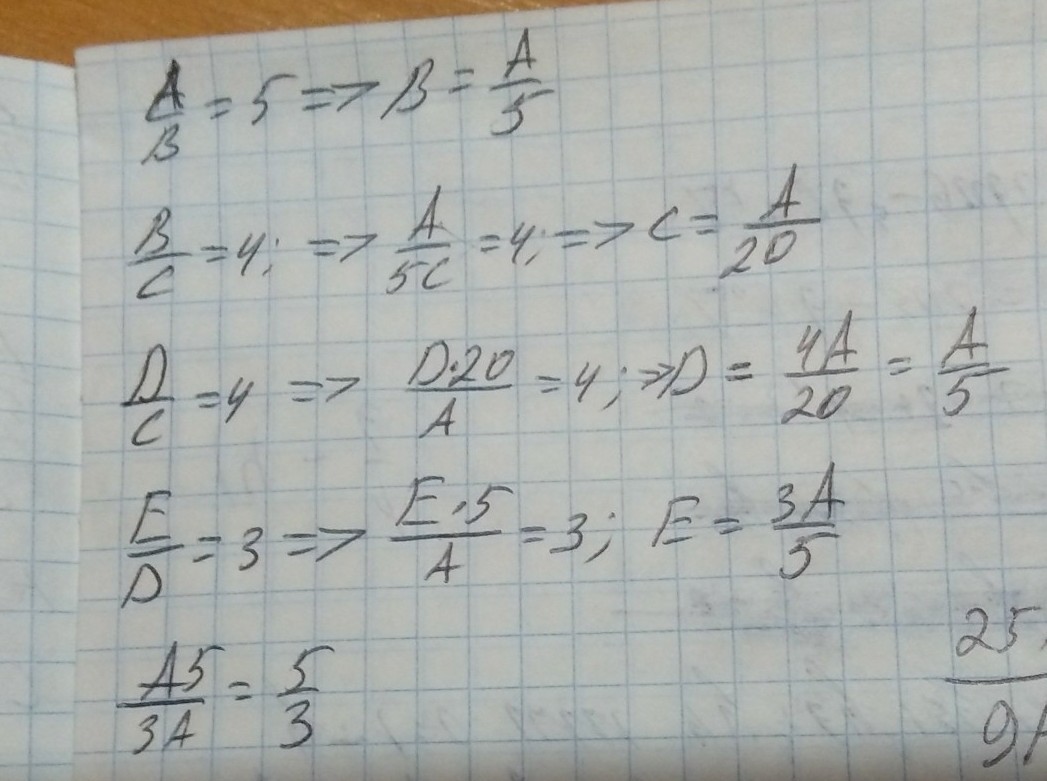 A/B = 5 => B = A/5
B/C = 4; => A/5C = 4; => C = A/20
D/C = 4 => D·20/A = 4; => D = 4A/20 = A/5
E/D = 3 => E·5/A = 3; E = 3A/5
A5/3A = 5/3
25
9